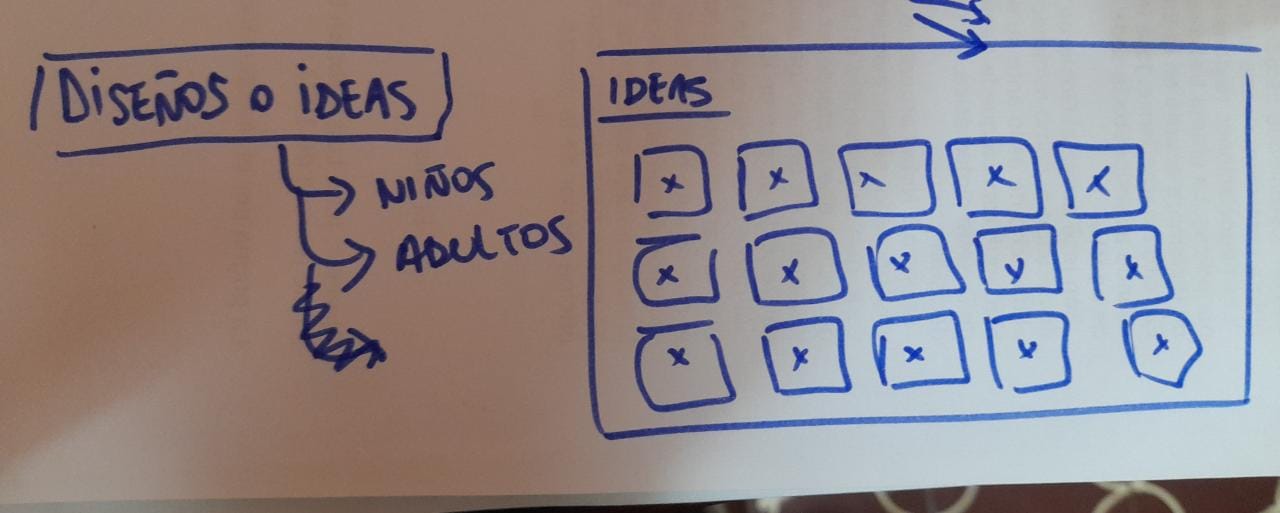 DiSEÑOS o iDEAS
NIÑOS
ADULTOS
IDEAS
x x x x x
x x x y x
x x x x x